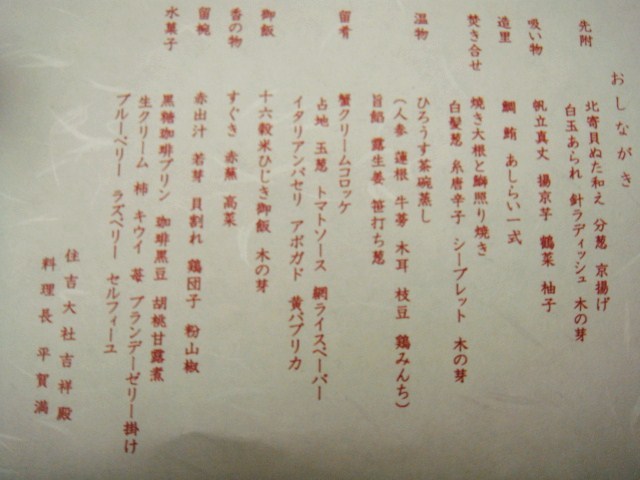 おしながき
先附 北寄貝ぬた和え 分葱 京揚げ
白玉あられ 針ラディッシュ 木の芽
吸い物 帆立真丈 揚京芋 鶴菜 柚子
造里 鯛 鮪 あしらい一式
焚き合せ 焼き大根と鰤照り焼き
白髪葱 糸唐辛子 シーブレット 木の芽
温物 ひろうす茶碗蒸し
(人参 蓮根 牛蒡 木耳 枝豆 鶏みんち)
旨餡 露生姜 笹打ち葱
留肴 蟹クリームコロッケ
占地 玉葱 トマトソース 網ライスペーパー
イタリアンパセリ アボガド 黄パプリカ
御飯 十六穀米ひじき御飯 木の芽
香の物 すぐき 赤蕪 高菜
留椀 赤出汁 若芽 貝割れ 鶏団子 粉山椒
水菓子 黒糖珈琲プリン 珈琲黒豆 胡桃甘露煮
生クリーム 柿 キウイ 苺 ブランデーゼリー掛け
ブルーベリー ラズベリー セルフィーユ
住吉大社吉祥殿
料理長 平賀 満